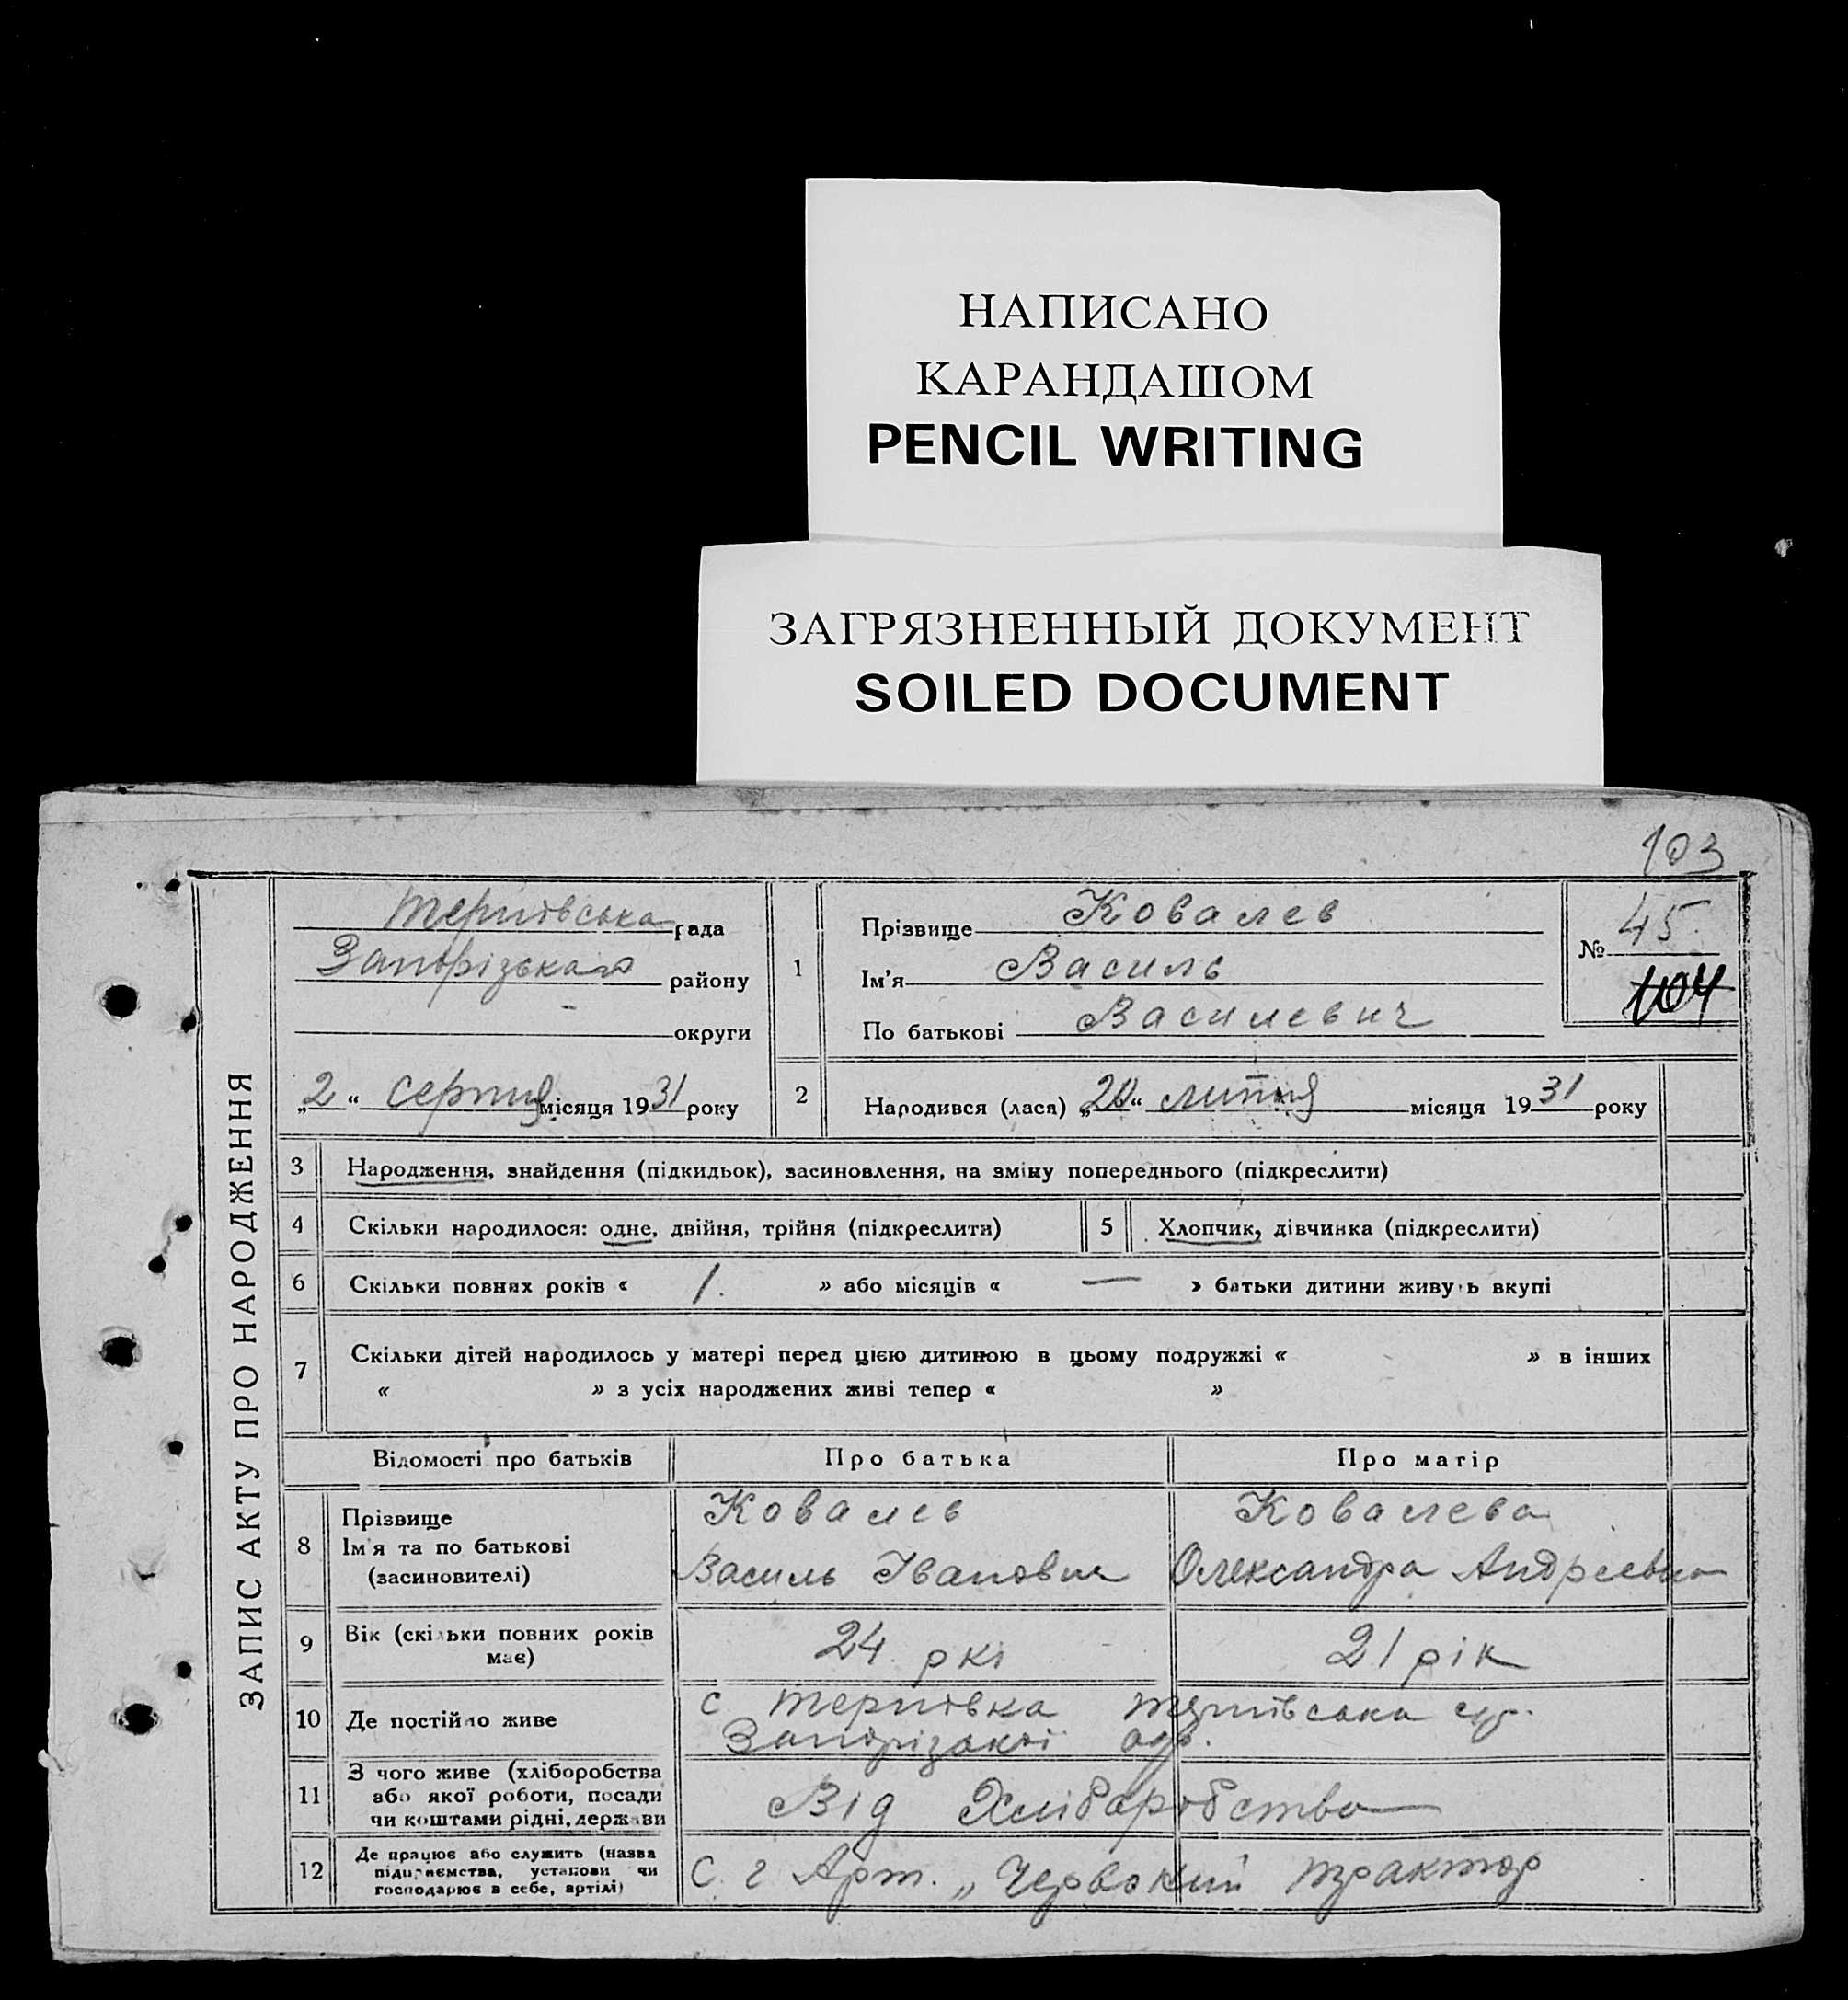 НАПИСАНО
КАРАНДАШОМ
PENCIL WRITING
ЗАГРЯЗНЕННЫЙ ДОКУМЕНТ
SOILED DOCUMENT
103
ЗАПИС АКТУ ПРО НАРОДЖЕННЯ
Тернівська рада
Запорізького району
- округи
„2“ серпня місяця 1931 року
1
Прізвище Ковалев
Ім'я Василь
По батькові Василевич
№ 45
104
2
Народився (лася) „20“ липня місяця 1931 року
3 Народження, знайдення (підкидьок), засиновлення, на зміну попереднього (підкреслити)
4 Скільки народилося: одне, двійня, трійня (підкреслити) 5 Хлопчик, дівчинка (підкреслити)
6 Скільки повних років « 1. » або місяців « — » батьки дитини живуть вкупі
7 Скільки дітей народилось у матері перед цією дитиною в цьому подружжі « » в інших
« » з усіх народжених живі тепер « »
Відомості про батьків Про батька Про матір
8 Прізвище
Ім'я та по батькові
(засиновителі)
Ковалев
Василь Іванович
Ковалева
Олександра Андреевна
9 Вік (скільки повних років
має)
24 ркі 21 рік
10 Де постійно живе
с Тернівка Тернівська с/р.
Запорізької
11 З чого живе (хліборобства
або якої роботи, посади
чи коштами рідні, держави
Від Хліборобства
12 Де працює або служить (назва
підприємства, установи чи
господарює в себе, артілі)
С. г Арт. „Червоний трактор